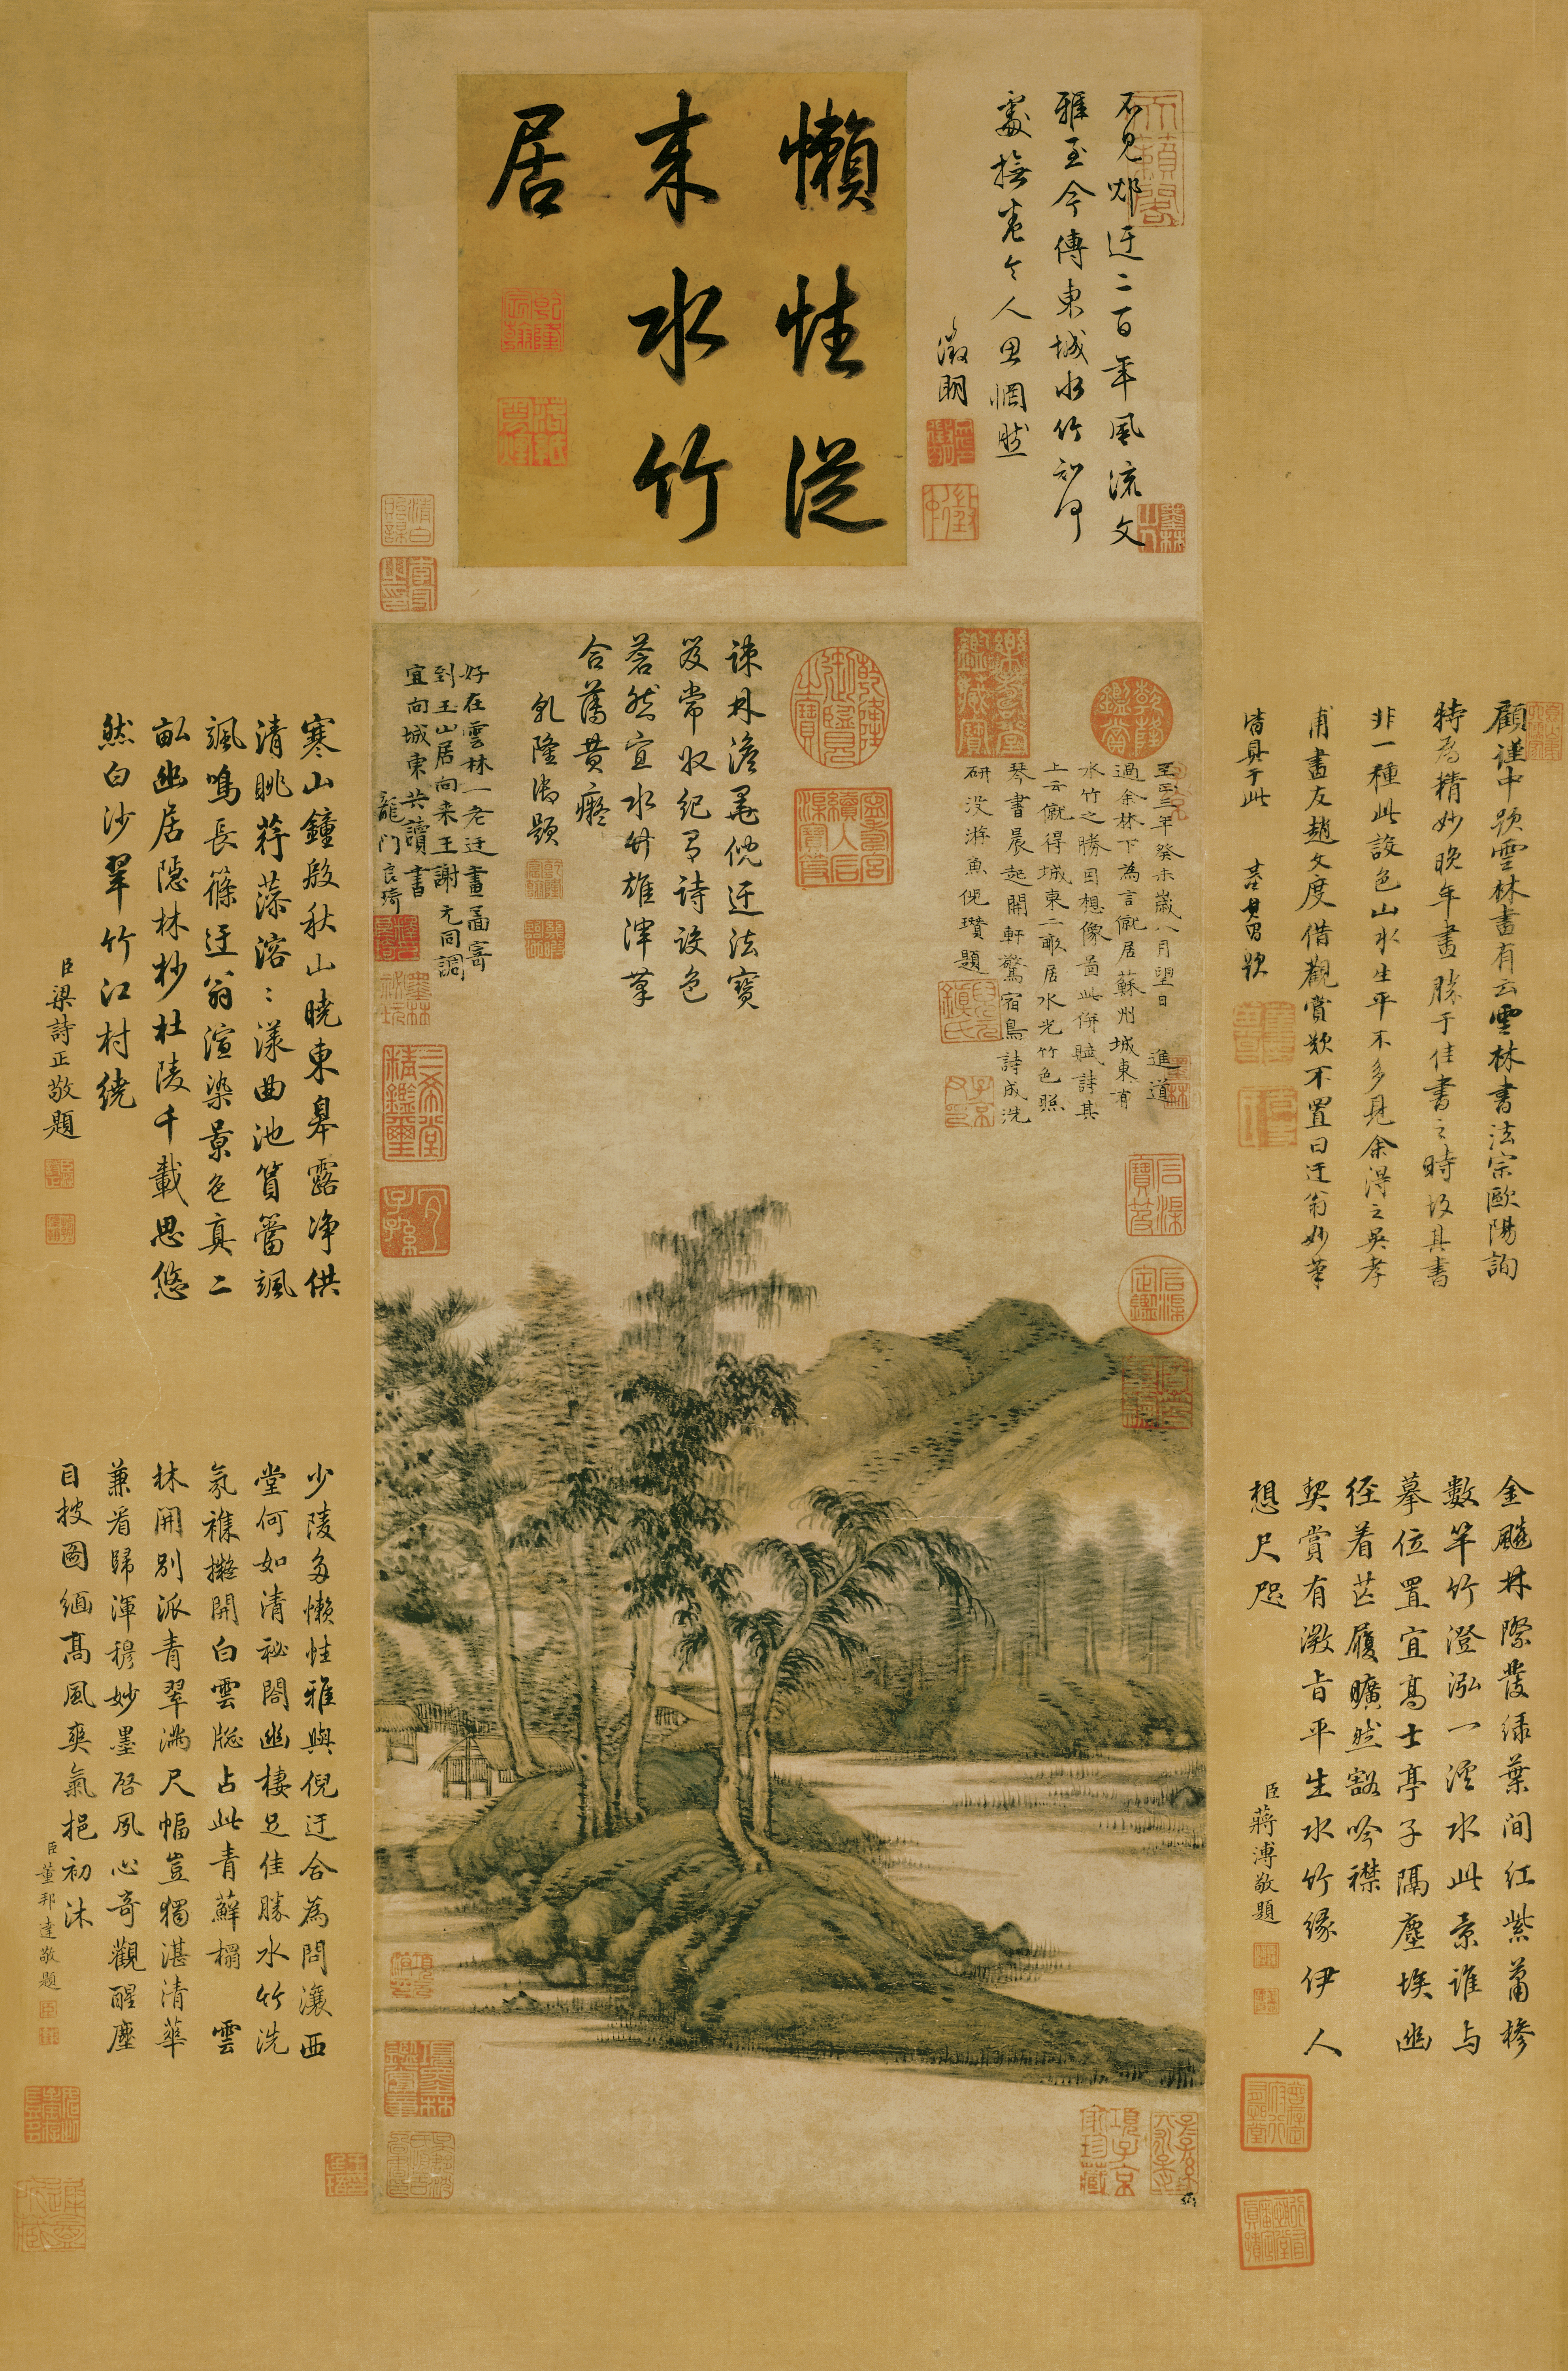 懶性從
來水竹
居
不見邨迂二百年風流文
雅至今傳東城水竹知何
處撫卷令人思惘然
徵明
至正三年癸未歲八月望日進道
過余林下為言僦居蘇州城東有
水竹之勝因想像圖此併賦詩其
上云僦得城東二畝居水光竹色照
琴書晨起開軒驚宿鳥詩成洗
研沒游魚倪瓚題
疎林澹靄倪迂法寶
笈常收紀有詩設色
蒼然宜水竹雄渾筆
合蒲黃癡
乾隆御題
好在雲林一老迂畫圖寄
到玉山居向來王謝元同調
宜向城東共讀書
龍門良琦
顧謹中題雲林畫有云雲林書法宗歐陽詢
特為精妙晚年畫勝于佳書之時故其書
非一種此設色山水生平不多見余得之吳孝
甫畫友趙文度借觀賞歎不置曰迂翁妙筆
墨林
金飈林際發綠葉間紅紫蕭槮
數竿竹澄泓一溪水此景誰與
摹位置宜高士亭子隔塵埃幽
徑着芒履曠然豁吟襟
契賞有微旨平生水竹緣伊人
想尺咫
臣蔣溥敬題
寒山鐘殷秋山曉東皋露淨供
清眺荇藻溶溶漾曲池篔簹颯
颯鳴長篠迂翁渲染景色真二
畝幽居隱林杪杜陵千載思悠
然白沙翠竹江村繞
臣梁詩正敬題
少陵多懶性雅與倪迂合為問瀼西
堂何如清祕閣幽棲足佳勝水竹洗
氛襍擬開白雲牕占此青蘚榻雲
林開別派青翠滿尺幅豈獨湛清華
兼看歸渾穆妙墨啓夙心奇觀醒塵
目披圖緬高風爽氣挹初沐
臣董邦達敬題